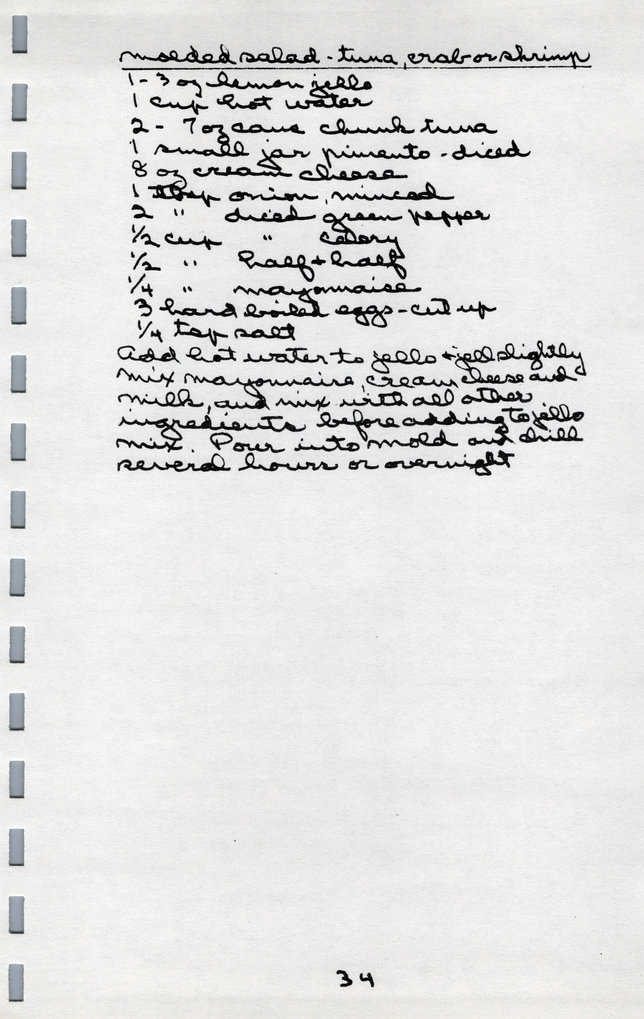 molded salad - tuna, crab or shrimp
1 - 3 oz lemon jello
1 cup hot water
2 - 7 oz cans chunk tuna
1 small jar pimento - diced
8 oz cream cheese
1 tbsp onion, minced
2 " diced green pepper
1/2 cup " celery
1/2 " half + half
1/4 " mayonnaise
3 hard boiled eggs - cut up
1/4 tsp salt
Add hot water to jello + jell slightly
mix mayonnaire, cream cheese and
milk, and mix with all other
ingredients before adding to jello
mix. Pour into mold and chill
several hours or overnight
34